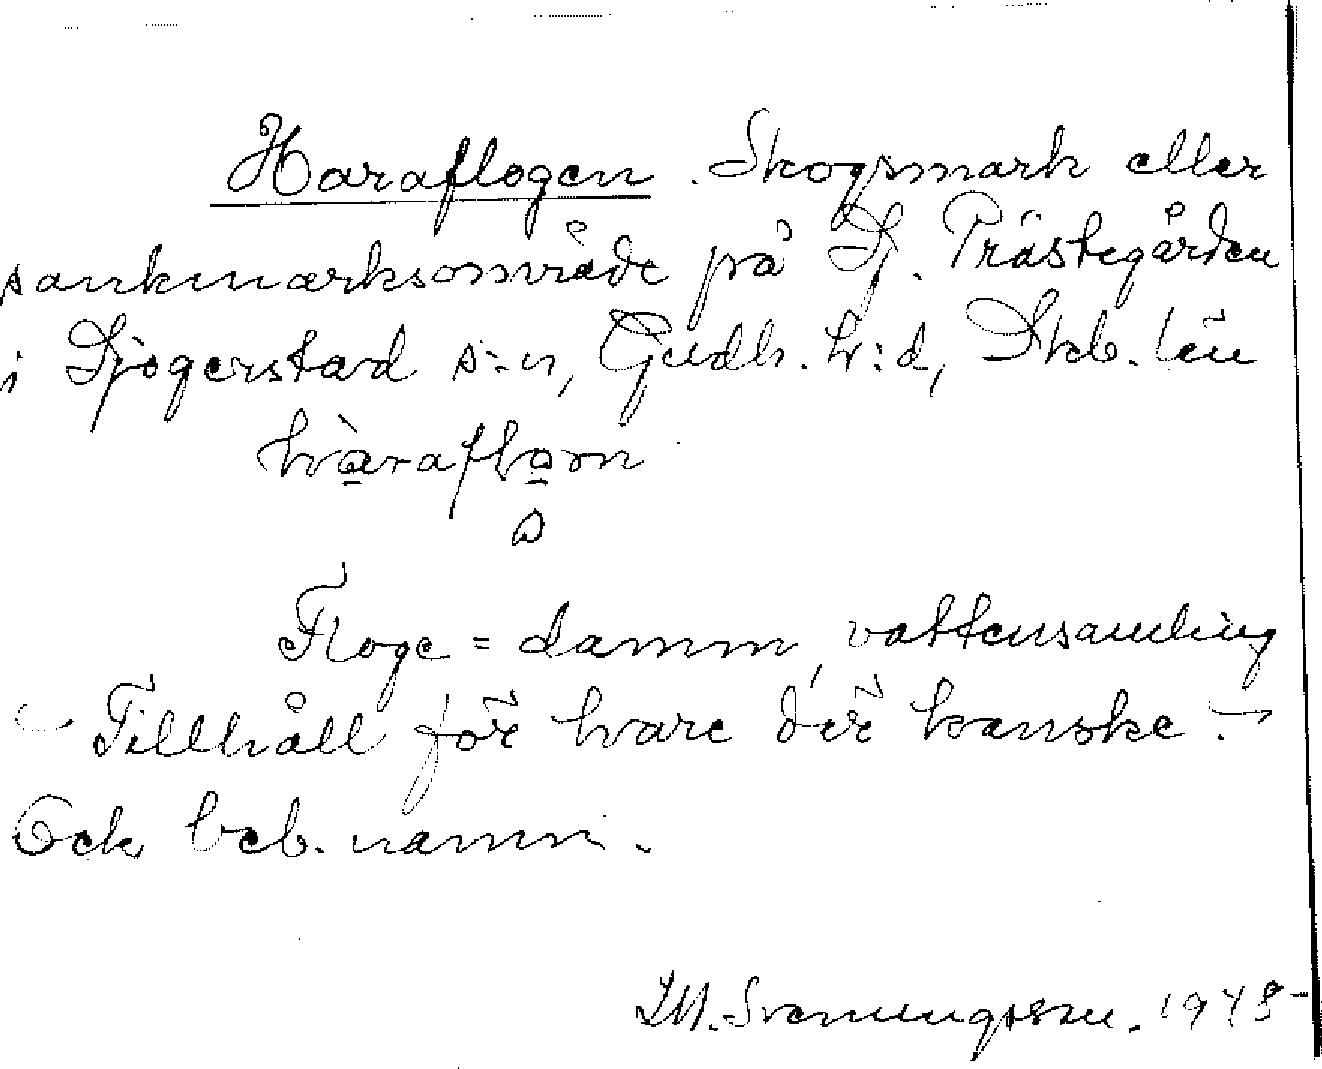 Haraflogen. Skogsmark eller
sankmarksområde på Dj. Prästegården
i Djogerstad s:n, Gudh. h:d, Skb. län
hàraflọm
Floge = damm, vattensamling
Tillhåll för hare där kanske.
Ock beb. namn.
M. Svenungsson. 1948